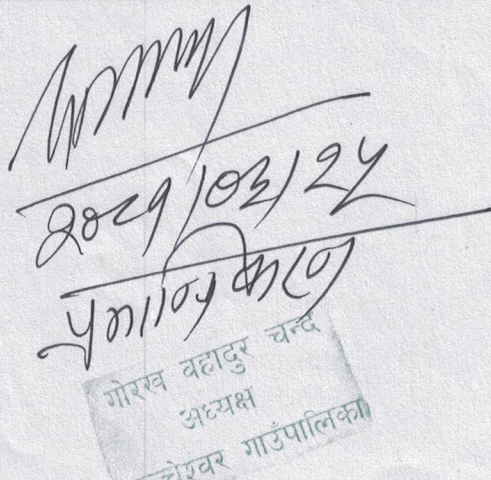 २०८१/०३/२५
प्रमाणिकरण
गोरख बहादुर चन्द
अध्यक्ष
गाउँपालिका